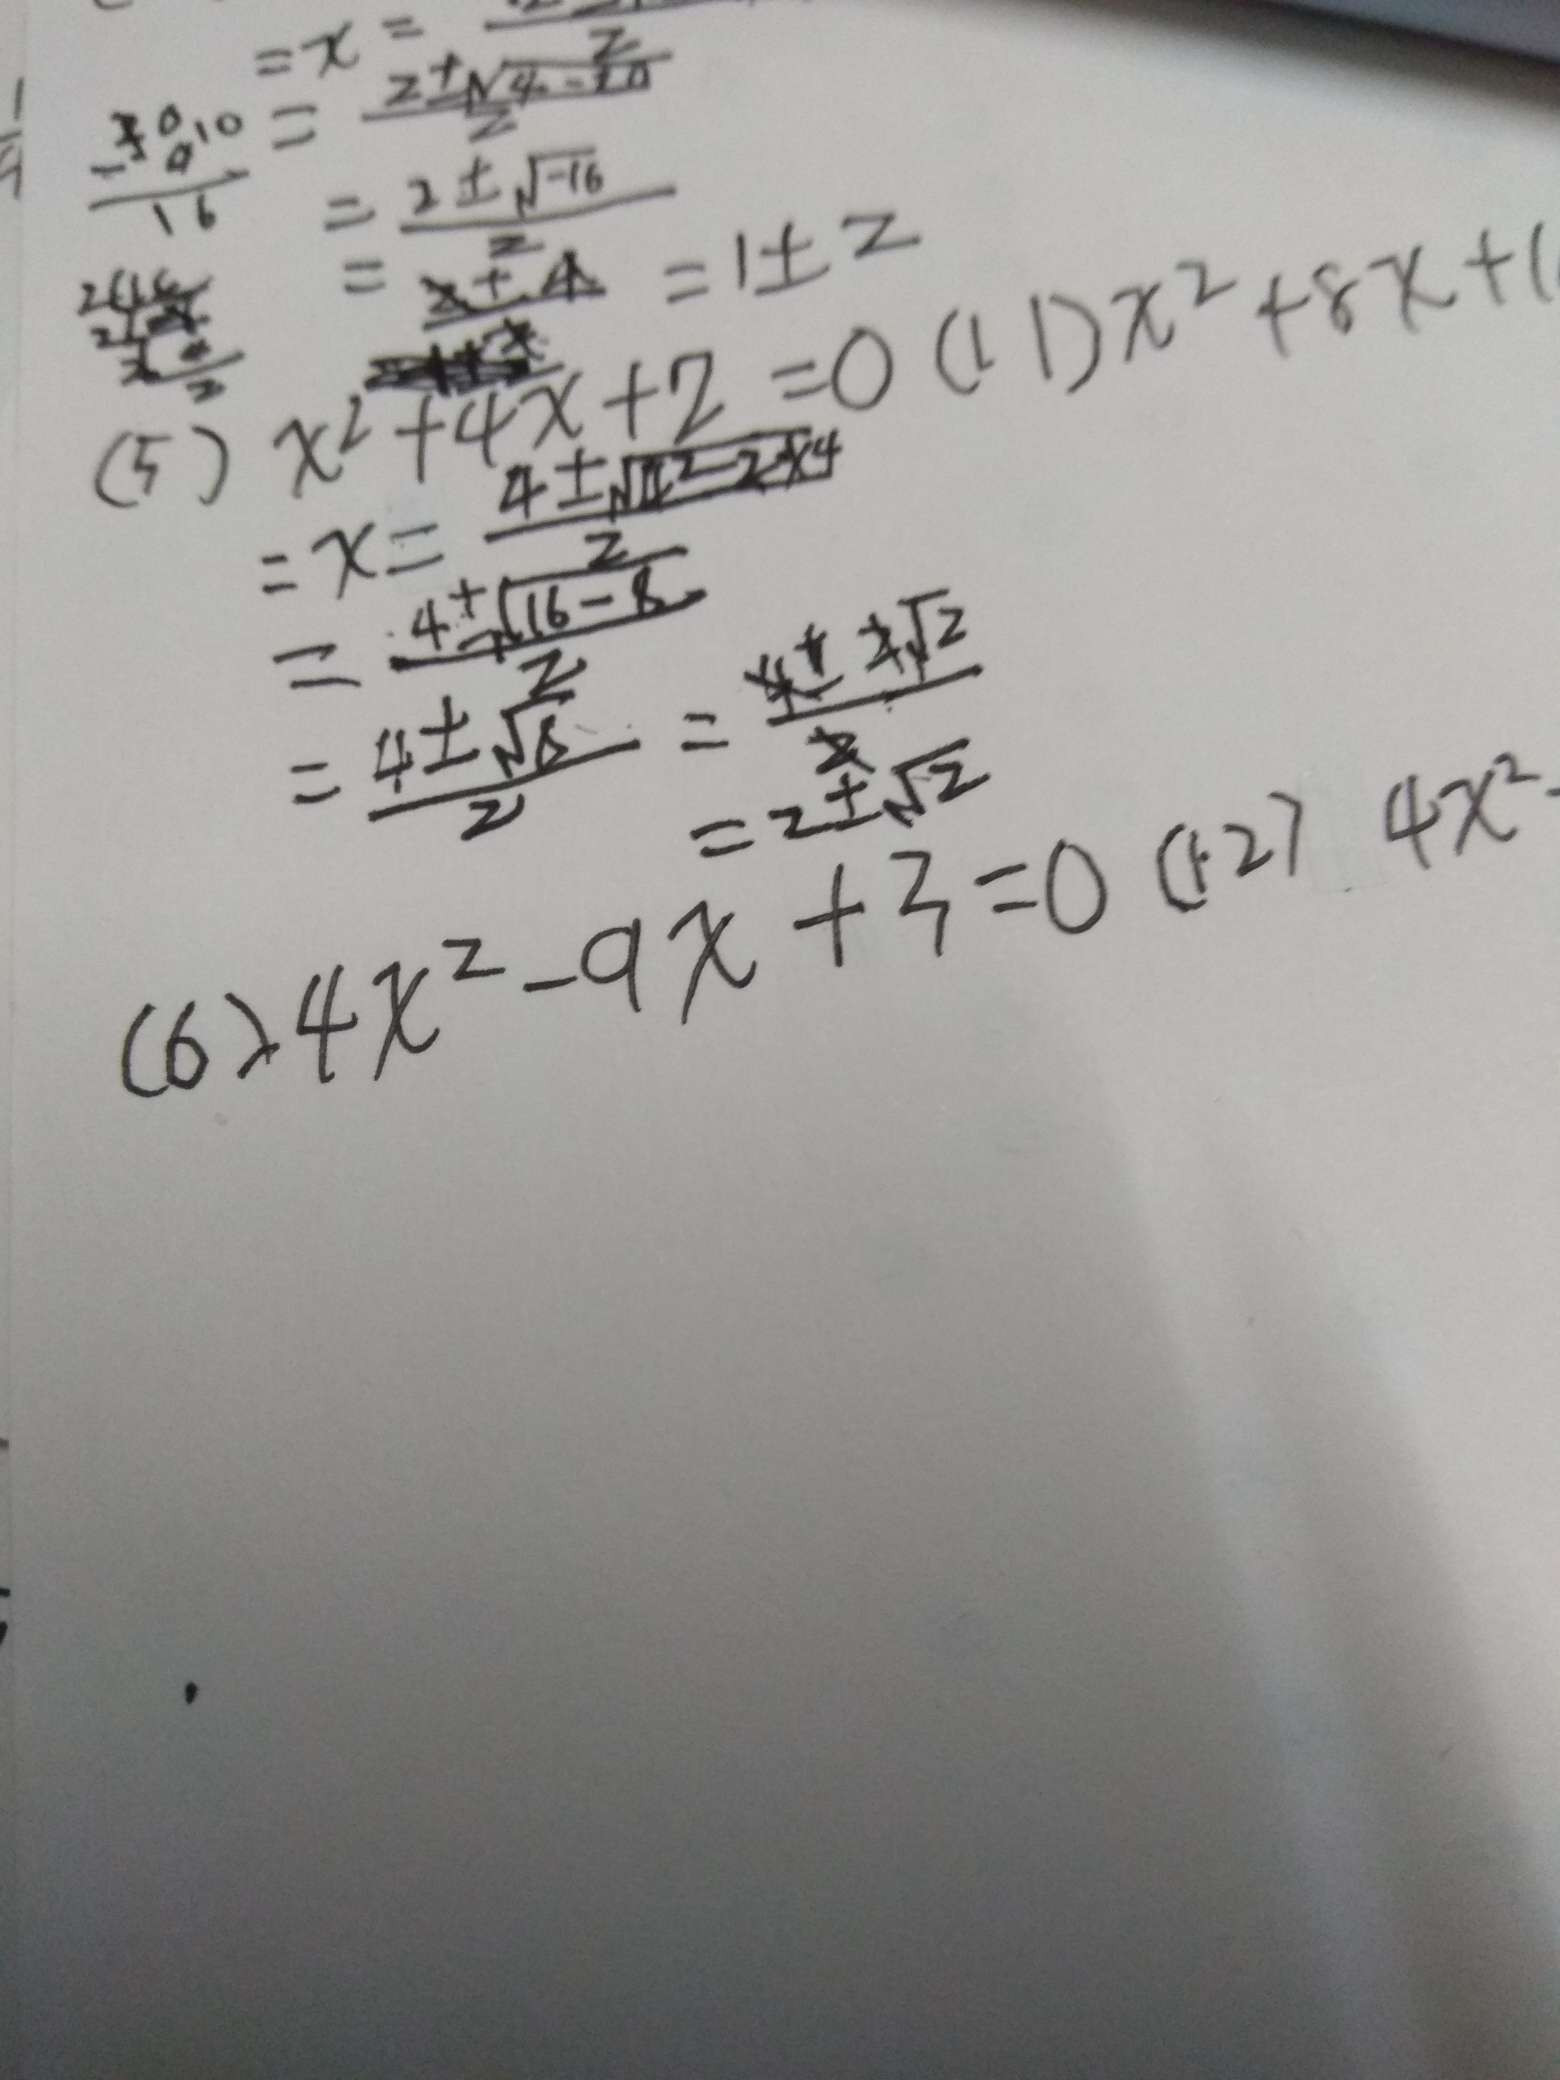 = x =
= 2±√4-20 / 2
= 2±√-16 / 2
16
= 2±4 = 1±2
(5) x²+4x+2=0 (11) x²+8x+1
= x = 4±√4²-2×4 / 2
= 4±√16-8 / 2
= 4±√8 / 2 = 4±2√2 / 2
= 2±√2
(6) 4x²-9x+3=0 (12) 4x²-